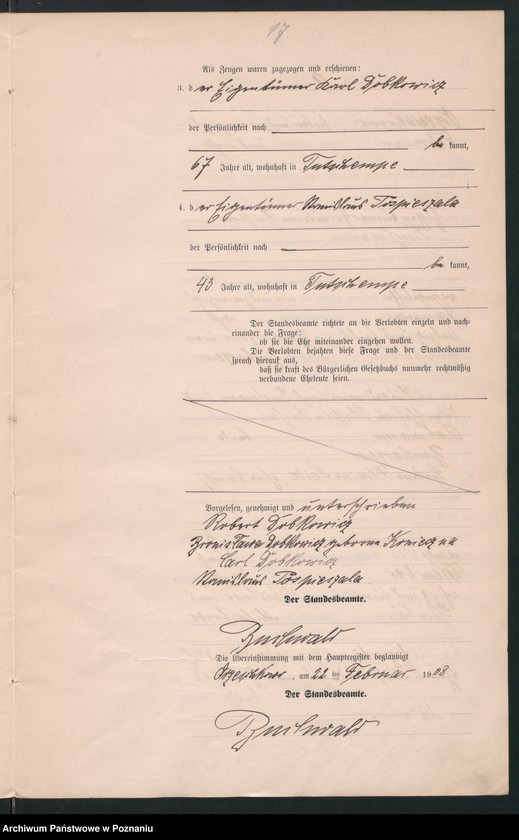 17.
Als Zeugen waren zugezogen und erschienen:
3. der Eigentümer Karl Dobkowicz
der Persönlichkeit nach
be kannt,
67 Jahre alt, wohnhaft in Tutschempe
4. der Eigentümer Stanislaus Pospieszala
der Persönlichkeit nach
be kannt,
43 Jahre alt, wohnhaft in Tutschempe
Der Standesbeamte richtete an die Verlobten einzeln und nach-
einander die Frage:
ob sie die Ehe miteinander eingehen wollen.
Die Verlobten bejahten diese Frage und der Standesbeamte
sprach hierauf aus,
daß sie kraft des Bürgerlichen Gesetzbuchs nunmehr rechtmäßig
verbundene Eheleute seien.
Vorgelesen, genehmigt und unterschrieben
Robert Dobkowicz
Bronislawa Dobkowicz geborene Konieczna
Carl Dobkowicz
Stanislaus Pospieszala
Der Standesbeamte.
Buchwald
Die Übereinstimmung mit dem Hauptregister beglaubigt
, am 22 ten Februar 1908
Der Standesbeamte.
Buchwald
Archiwum Państwowe w Poznaniu